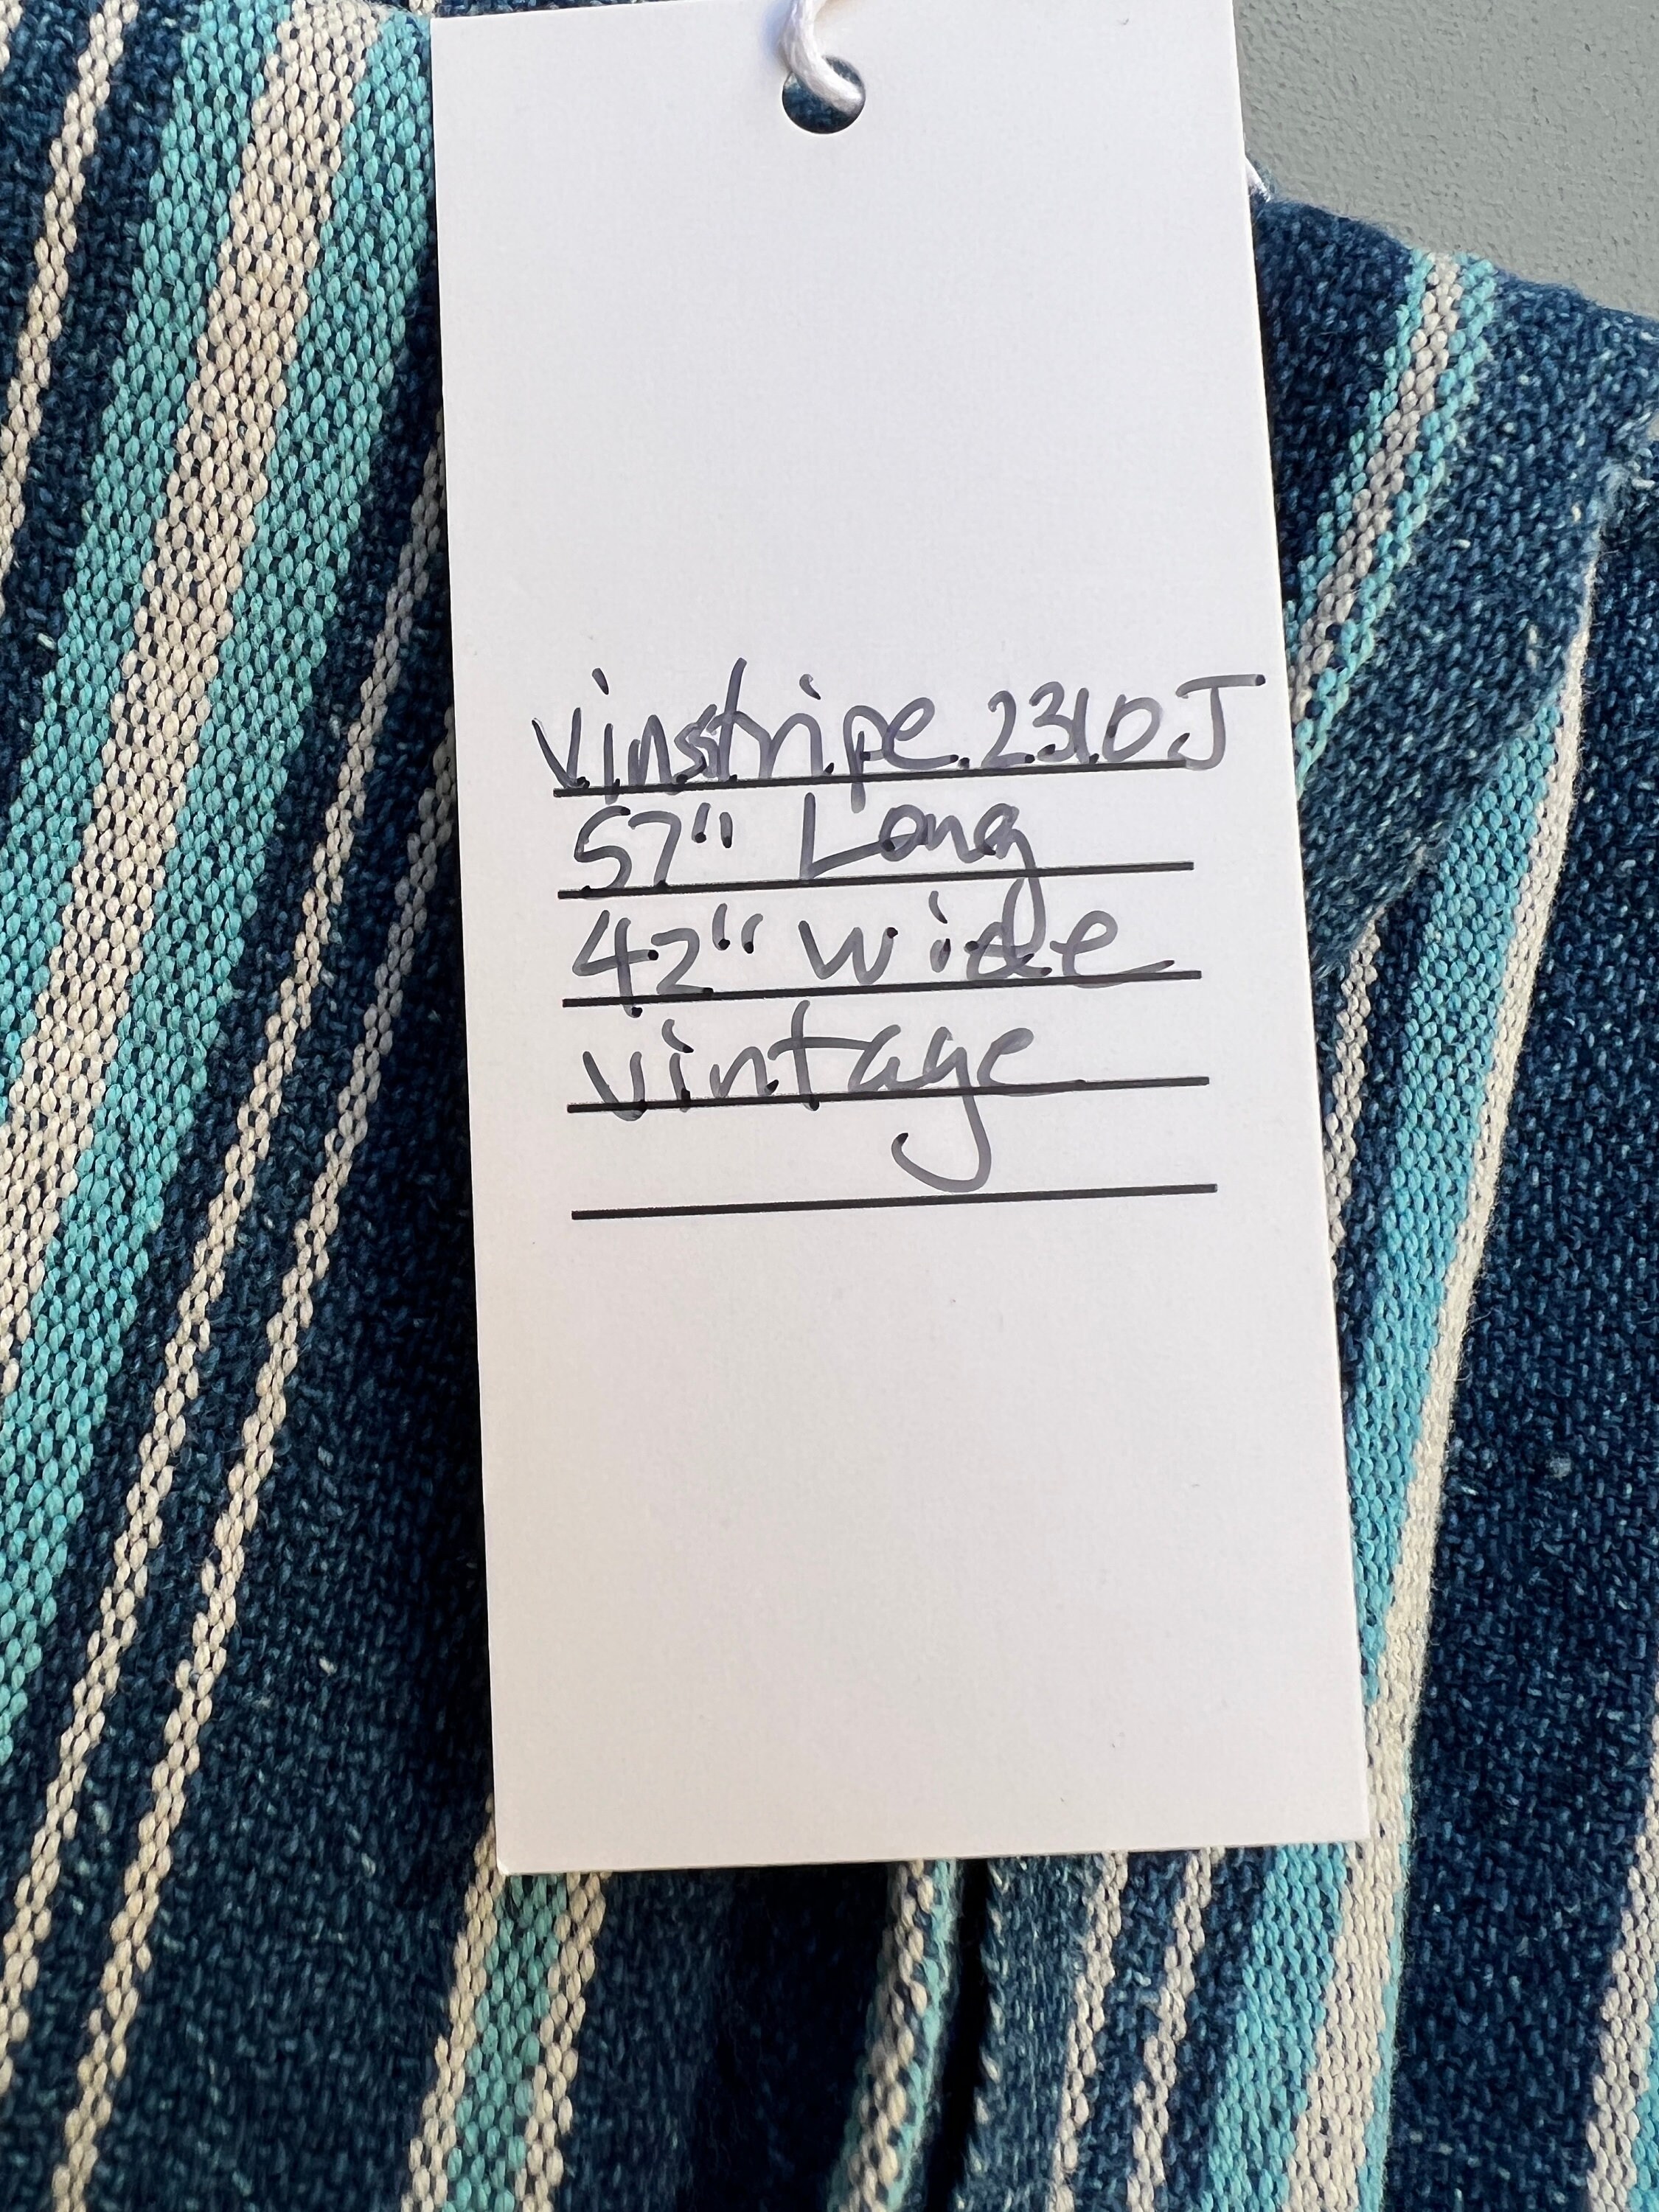 vinstripe.2310J
57" Long
42" wide
vintage